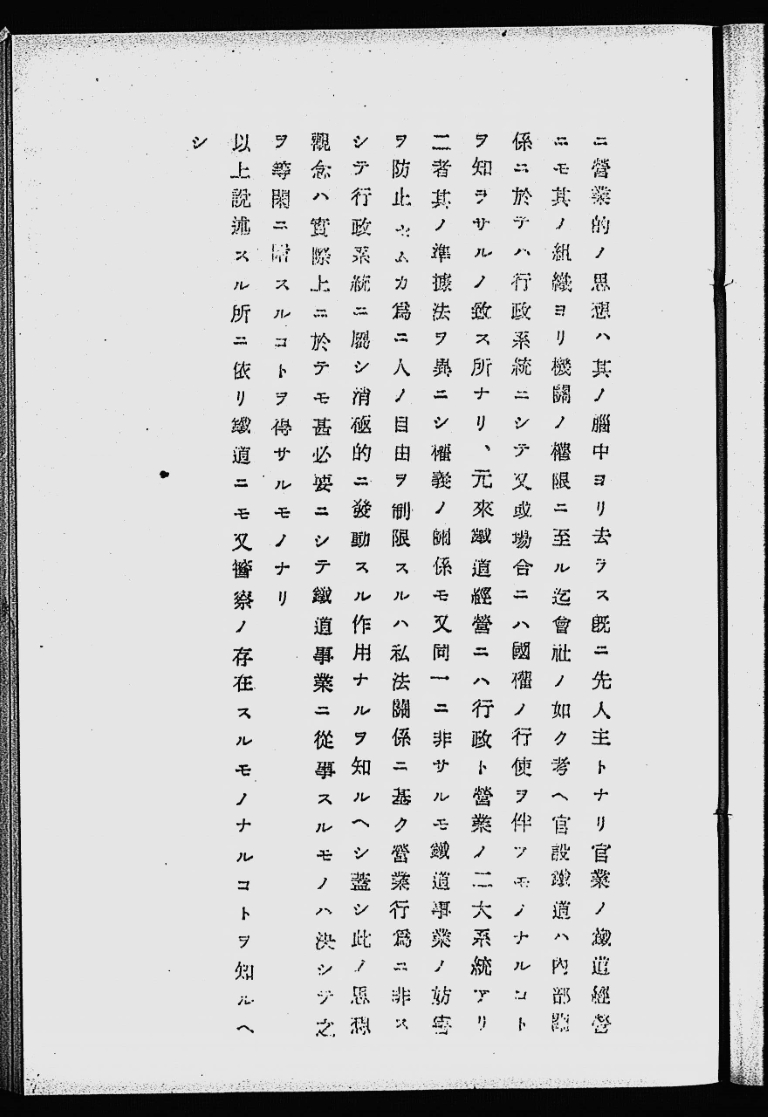 ニ營業的ノ思想ハ其ノ腦中ヨリ去ラス既ニ先人主トナリ官業ノ鐵道經營
ニモ其ノ組織ヨリ機關ノ權限ニ至ル迄會社ノ如ク考ヘ官設鐵道ハ內部關
係ニ於テハ行政系統ニシテ又或場合ニハ國權ノ行使ヲ伴フモノナルコト
ヲ知ラサルノ致ス所ナリ、元來鐵道經營ニハ行政ト營業ノ二大系統アリ
二者其ノ準據法ヲ異ニシ權義ノ關係モ又同一ニ非サルモ鐵道事業ノ妨害
ヲ防止セムカ爲ニ人ノ自由ヲ制限スルハ私法關係ニ基ク營業行爲ニ非ス
シテ行政系統ニ屬シ消極的ニ發動スル作用ナルヲ知ルヘシ蓋シ此ノ思想
觀念ハ實際上ニ於テモ甚必要ニシテ鐵道事業ニ從事スルモノハ決シテ之
ヲ等閑ニ附スルコトヲ得サルモノナリ
以上說述スル所ニ依リ鐵道ニモ又警察ノ存在スルモノナルコトヲ知ルヘ
シ